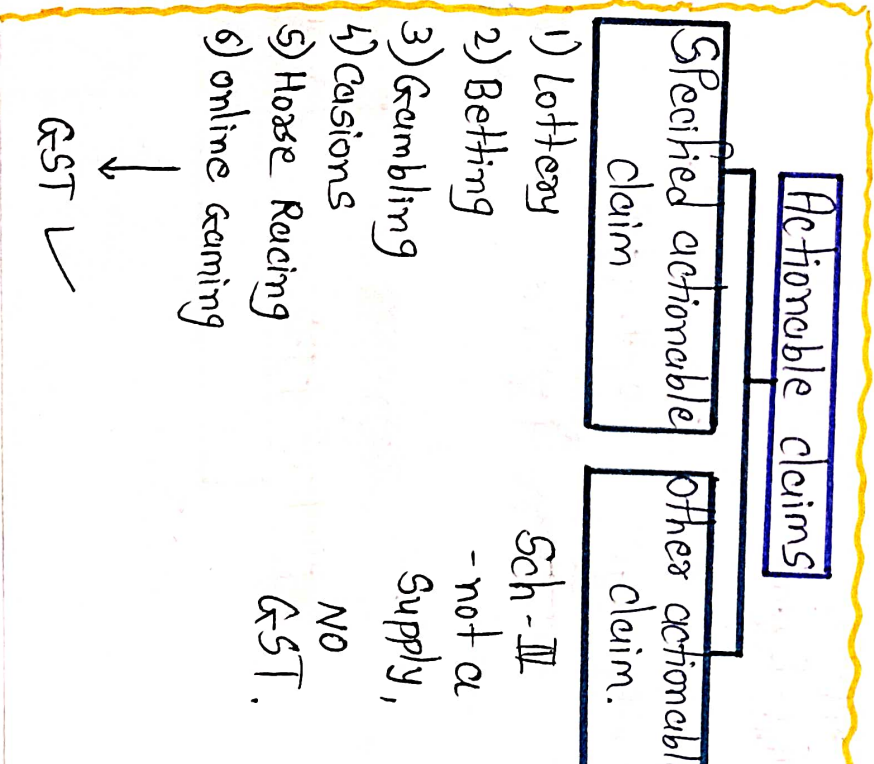 Actionable claims
Specified actionable
claim
1) Lottery
2) Betting
3) Gambling
4) Casions
5) Horse Racing
6) online Gaming
GST ✓
other actionabl
claim.
Sch-III
- not a
Supply,
NO
GST.